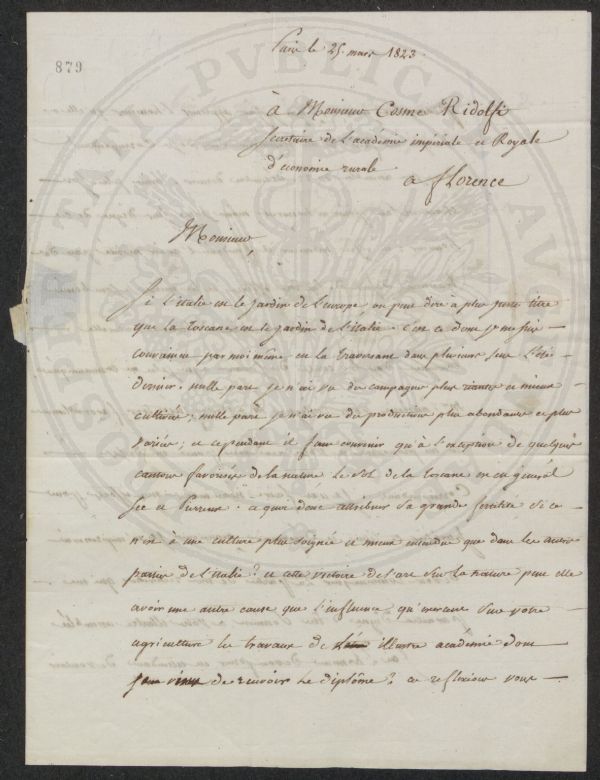 879
Paris le 25. mars 1823.
à Monsieur Cosme Ridolfi
secretaire de L'académie impériale et Royale
d'économie rurale
a fLorence
Monsieur,
Si L'italie est le jardin de L'europe, on peut dire à plus juste titre
que La toscane est le jardin de L'italie. c'est ce dont je me suis
convaincu par moi même en La traversant dans plusieurs sens L'été
dernier. nulle part je n'ai vu des campagnes plus riantes et mieux
cultivées; nulle part je n'ai vu des productions plus abondantes et plus
variées; et cependant il faut convenir qu'à L'exception de quelques
cantons favorisés de la nature Le sol de La toscane est en général
sec et Pierreux. a quoi donc attribuer sa grande fertilité si ce
n'est à une culture plus soignée et mieux entendue que dans les autres
parties de L'italie? et cette victoire de L'art sur La nature peut elle
avoir une autre cause que L'influence qu'exercent sur votre
agriculture les travaux de illustre académie dont
je viens de recevoir Le diplôme? ces reflexions vous
PROSPERITATI PUBLICAE AUGENDAE